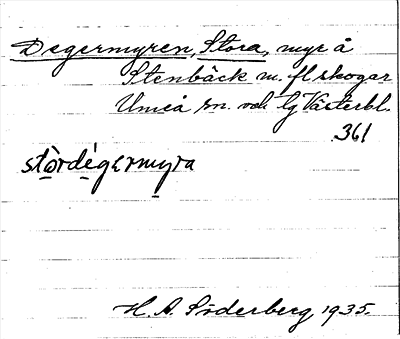 Degermyren, Stora, myr å
Stenbäck m. fl skogar
Umeå sn. och lg Västerbl.
361
stòrdégermyra
H. A. Söderberg, 1935.